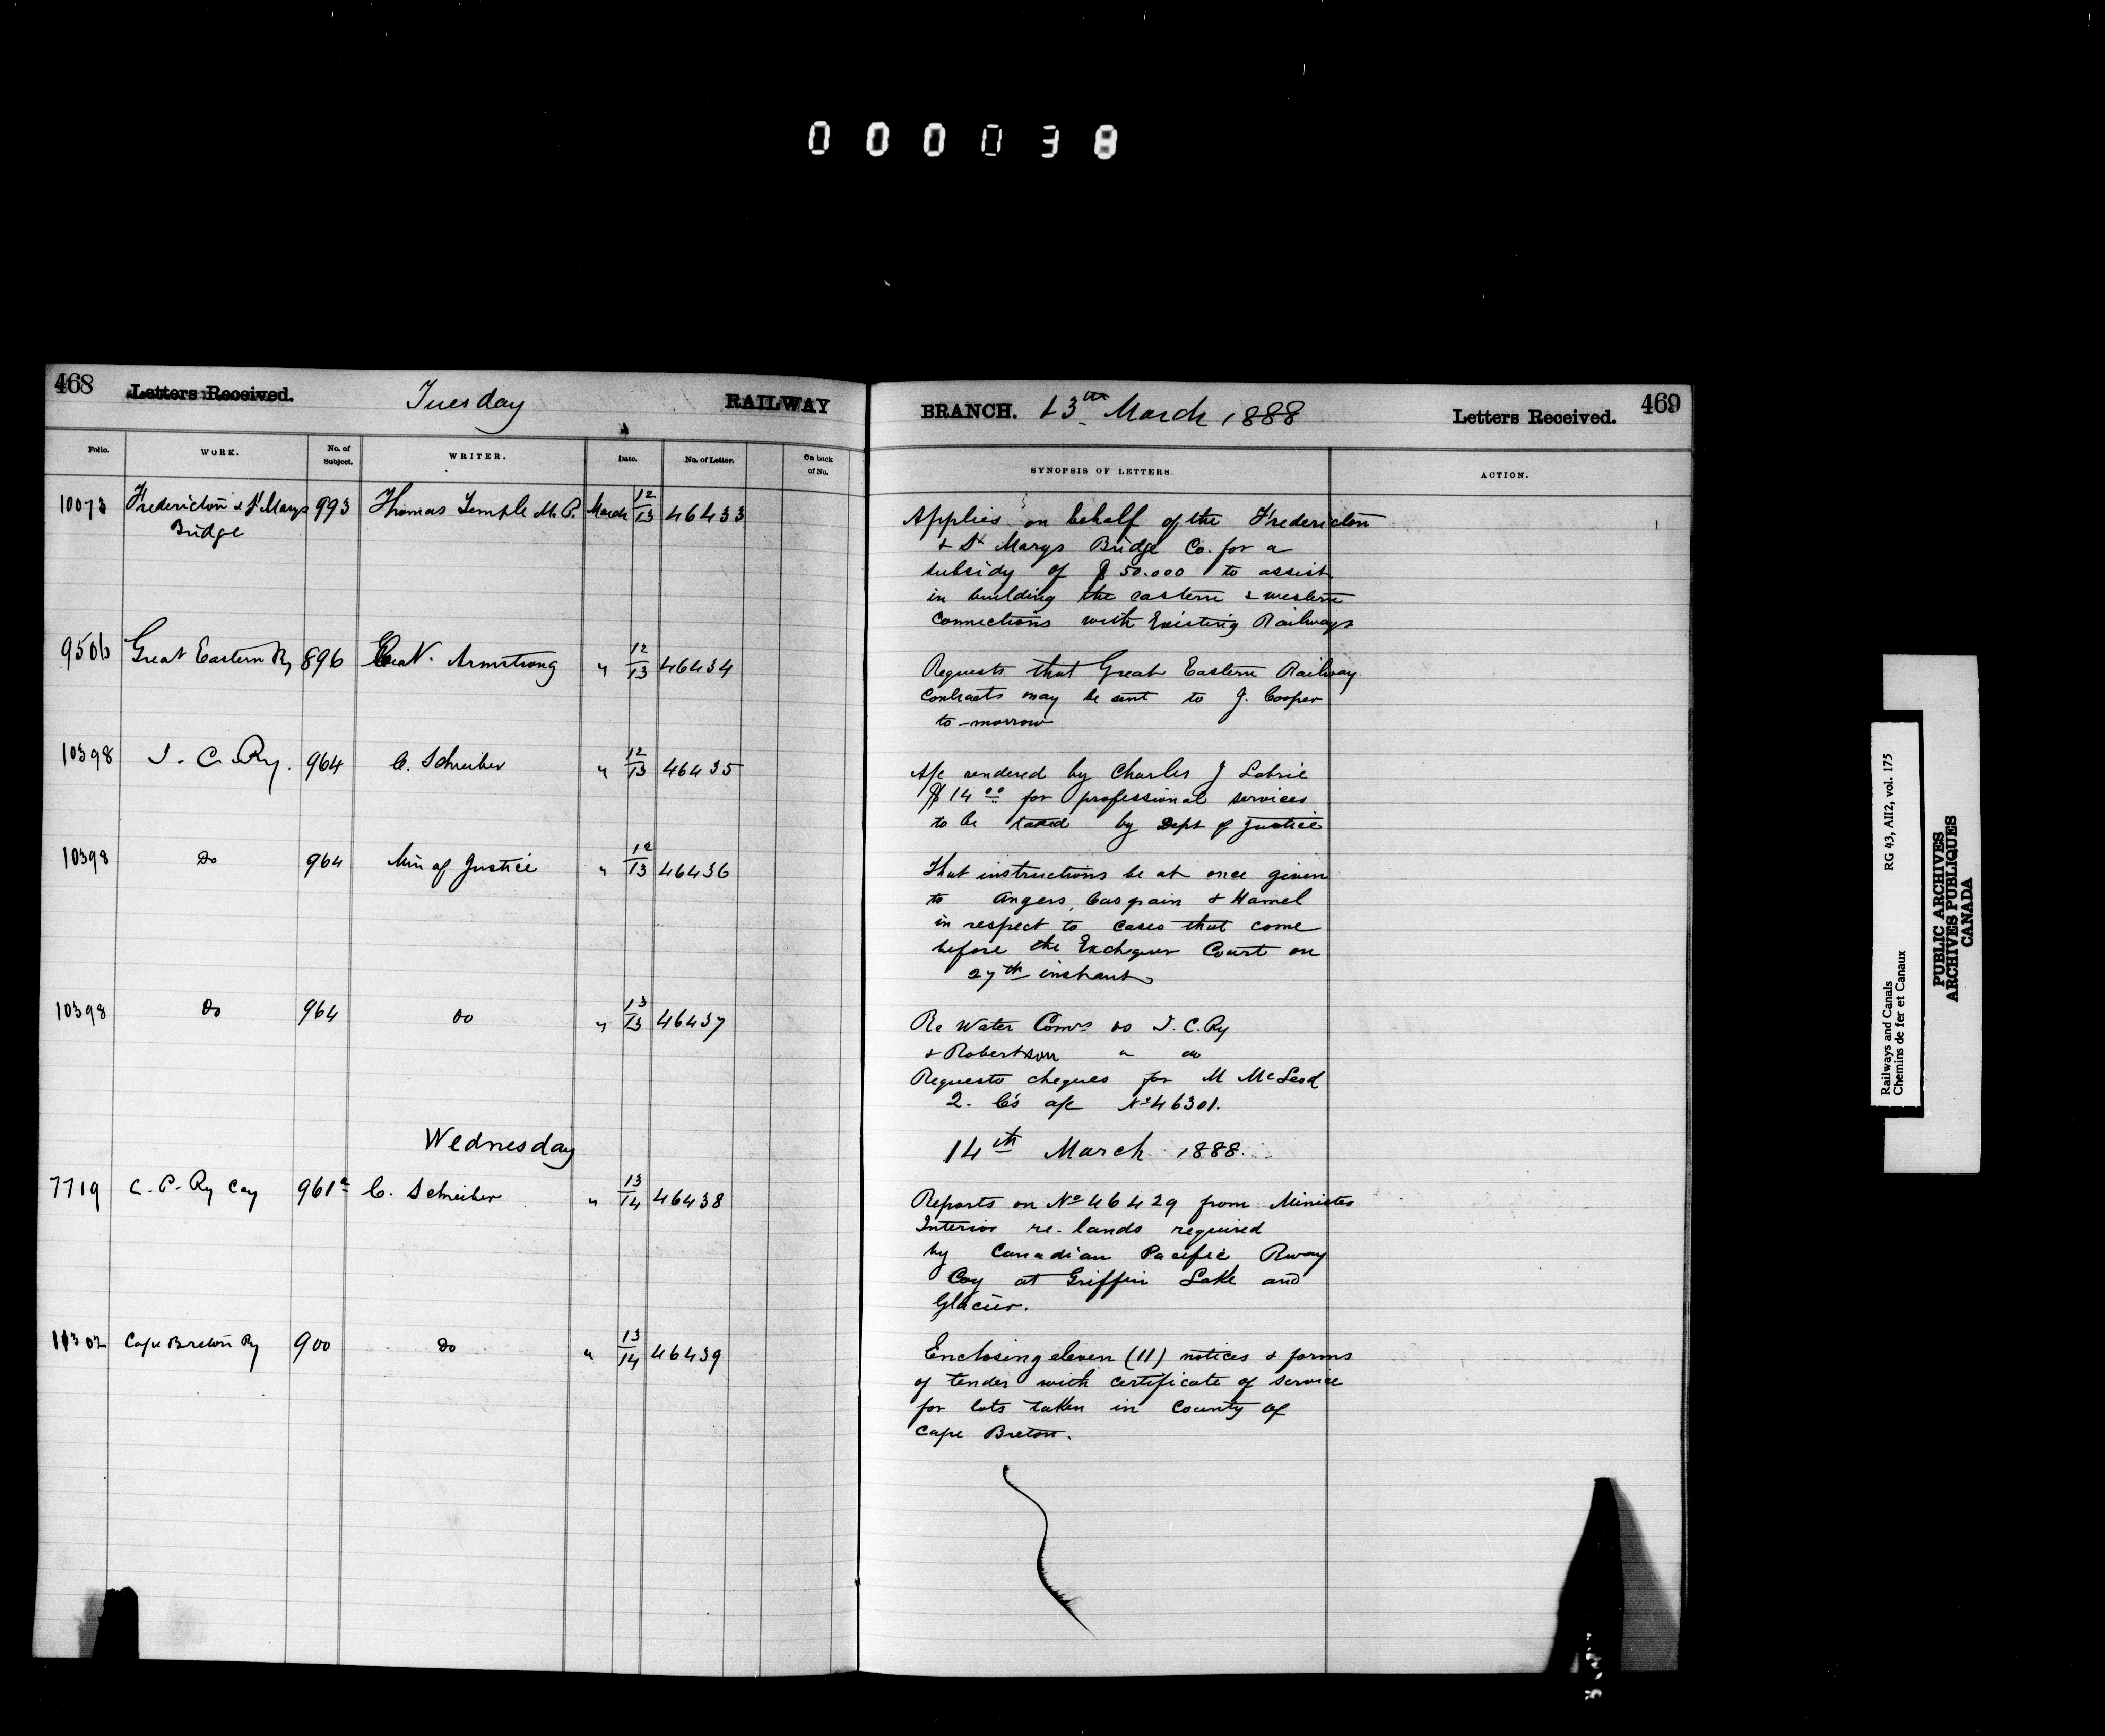 000038
468 Letters Received. Tuesday RAILWAY
BRANCH. 13th March 1888 Letters Received. 469
Folio. WORK. No. of Subject. WRITER. Date. No. of Letter. On back of No.
SYNOPSIS OF LETTERS. ACTION.
10073 Fredericton & St Marys Bridge 993 Thomas Temple M.P. March 12/13 46433
Applies on behalf of the Fredericton
& St Marys Bridge Co. for a
subsidy of $50.000 to assist
in building the eastern & western
connections with Existing Railways
9506 Great Eastern Ry 896 Armstrong " 12/13 46434
Requests that Great Eastern Railway
contracts may be sent to J. Cooper
to-morrow
10398 I. C. Ry. 964 C. Schreiber " 12/13 46435
A/c rendered by Charles J Labrie
$14 00 for professional services
to be taxed by Dept of Justice
10398 Do 964 Min of Justice " 12/13 46436
That instructions be at once given
to Angers, Casgrain & Hamel
in respect to cases that come
before the Exchequer Court on
27th instant
10398 Do 964 Do " 13/13 46437
Re Water Comrs vs I. C. Ry
& Robertson " do
Requests cheques for M McLeod
2. C's a/c No 46301.
Wednesday 14th March 1888.
7719 C. P. Ry Coy 961a C. Schreiber " 13/14 46438
Reports on No 46429 from Minister
Interior re. lands required
by Canadian Pacific Rway
Coy at Griffin Lake and
Glacier.
11302 Cape Breton Ry 900 Do " 13/14 46439
Enclosing eleven (11) notices & forms
of tender with certificate of service
for lots taken in County of
Cape Breton.
Railways and Canals RG 43, AII2, vol. 175
Chemins de fer et Canaux
PUBLIC ARCHIVES
ARCHIVES PUBLIQUES
CANADA